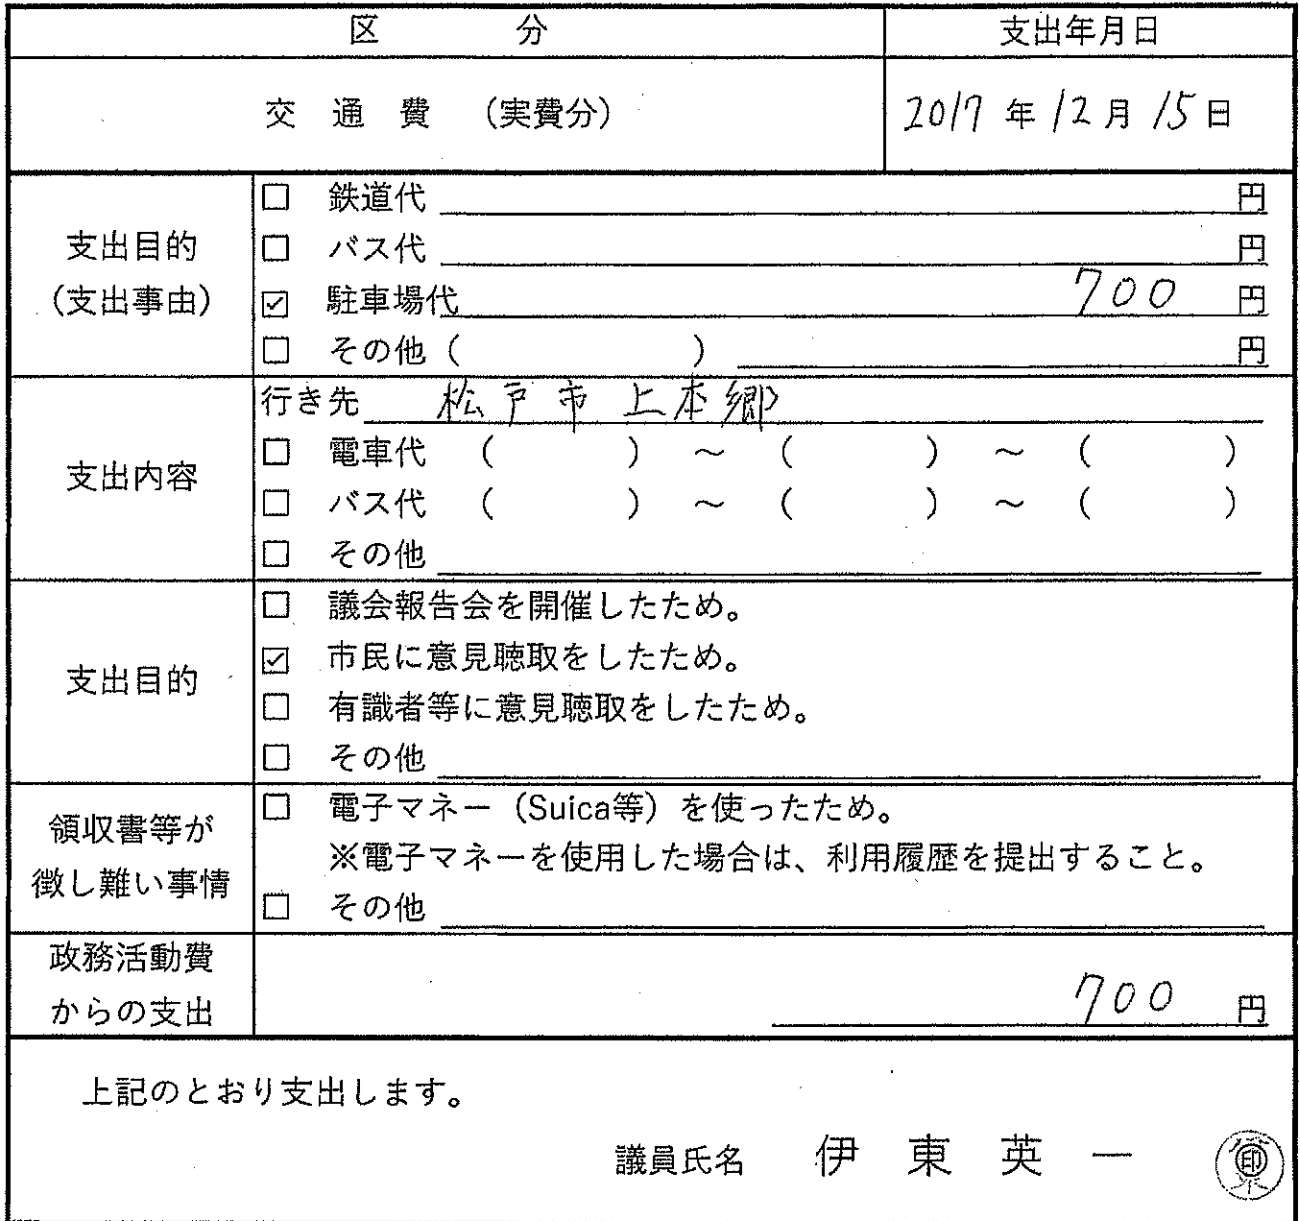 区 分 支出年月日
交 通 費 (実費分) 2017 年 12 月 15 日
支出目的
(支出事由)
□ 鉄道代 円
□ バス代 円
☑ 駐車場代 700 円
□ その他 ( ) 円
支出内容
行き先 松戸市 上本郷
□ 電車代 ( ) ~ ( ) ~ ( )
□ バス代 ( ) ~ ( ) ~ ( )
□ その他
支出目的
□ 議会報告会を開催したため。
☑ 市民に意見聴取をしたため。
□ 有識者等に意見聴取をしたため。
□ その他
領収書等が
徴し難い事情
□ 電子マネー(Suica等)を使ったため。
※電子マネーを使用した場合は、利用履歴を提出すること。
□ その他
政務活動費
からの支出
700 円
上記のとおり支出します。
議員氏名 伊 東 英 一 印